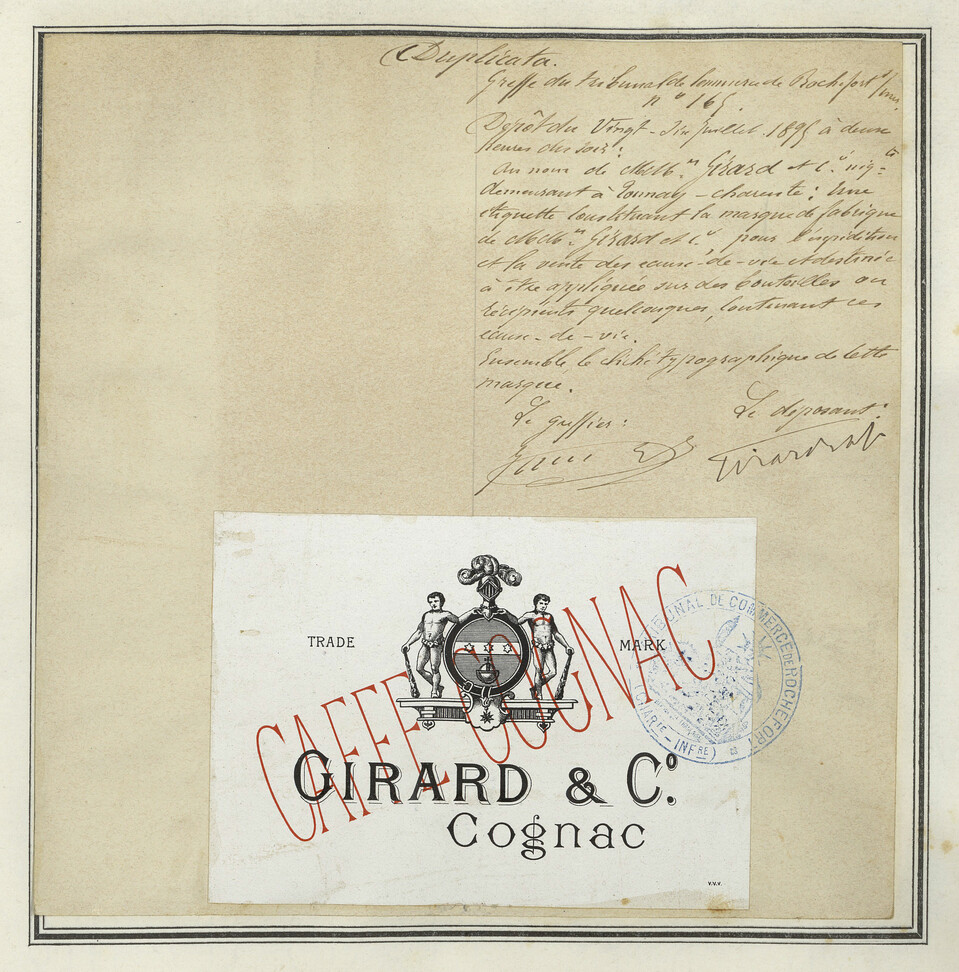 Duplicata.
Greffe du tribunal de Commerce de Rochefort s/mer,
n° 165.
Dépôt du Vingt-six Juillet 1895 à deux
heures du soir :
Au nom de MM.rs Girard et C.ie nég.ts
demeurant à Tonnay-charente : Une
étiquette Constituant la marque de fabrique
de MM.rs Girard et C.ie, pour l'expédition
et la vente des eaux-de-vie et destinée
à être appliquée sur des bouteilles ou
récipients quelconques, Contenant ces
eaux-de-vie.
Ensemble, le cliché typographique de cette
marque.
Le greffier : Le déposant :
TRADE MARK
CAFFE COGNAC
GIRARD & Co.
Cognac
V.V.V.
TRIBUNAL DE COMMERCE DE ROCHEFORT
INFRE)